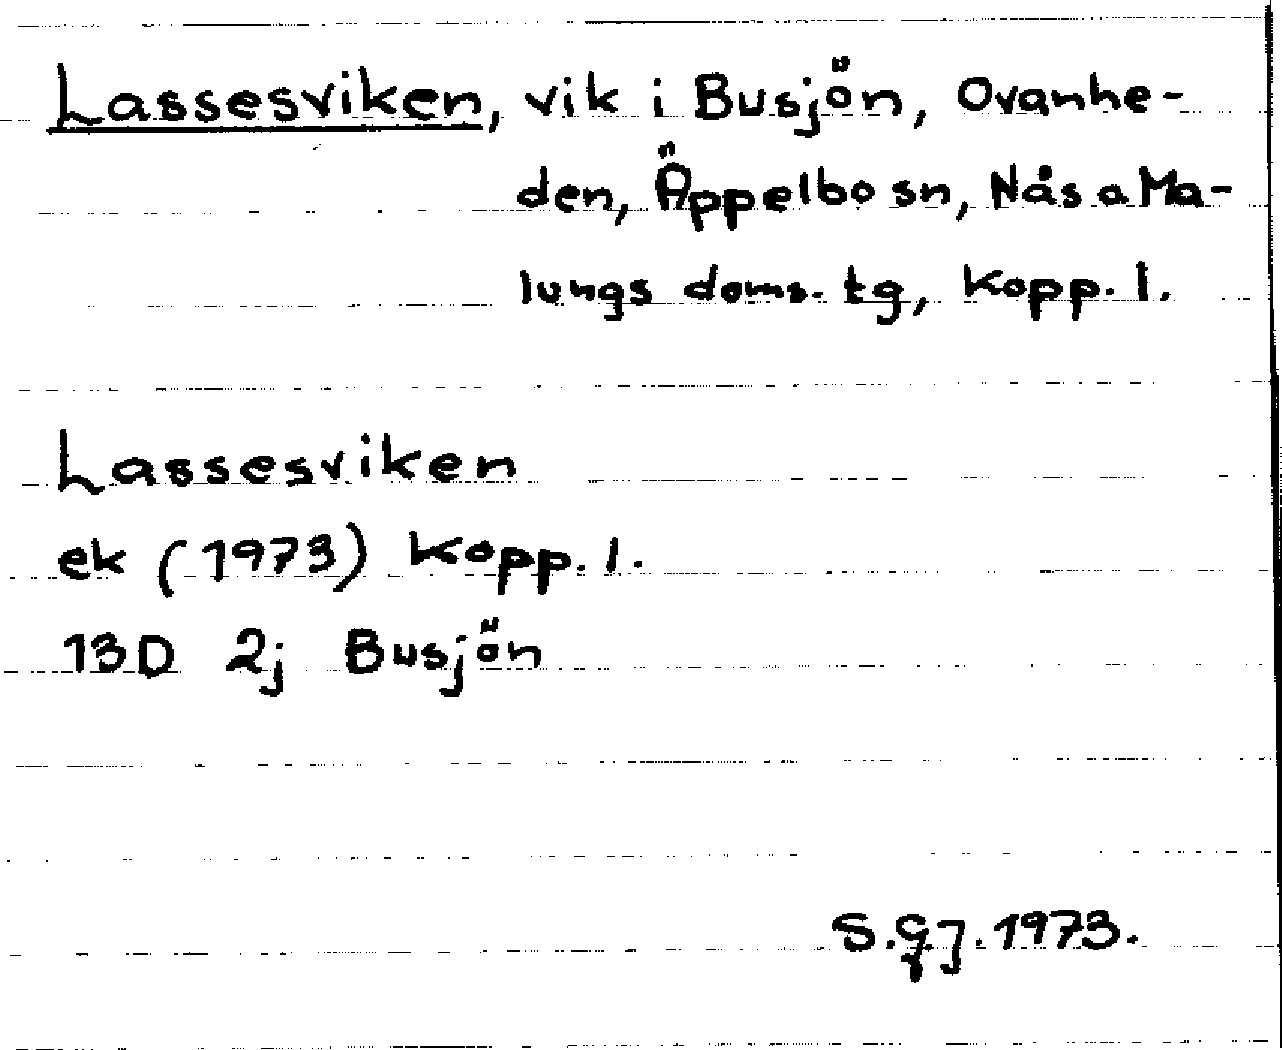 Lassesviken, vik i Busjön, Ovanhe-
den, Äppelbo sn, Nås a Ma-
lungs doms. tg, Kopp. l.
Lassesviken
ek (1973) Kopp. l.
13D 2j Busjön
S.GJ. 1973.